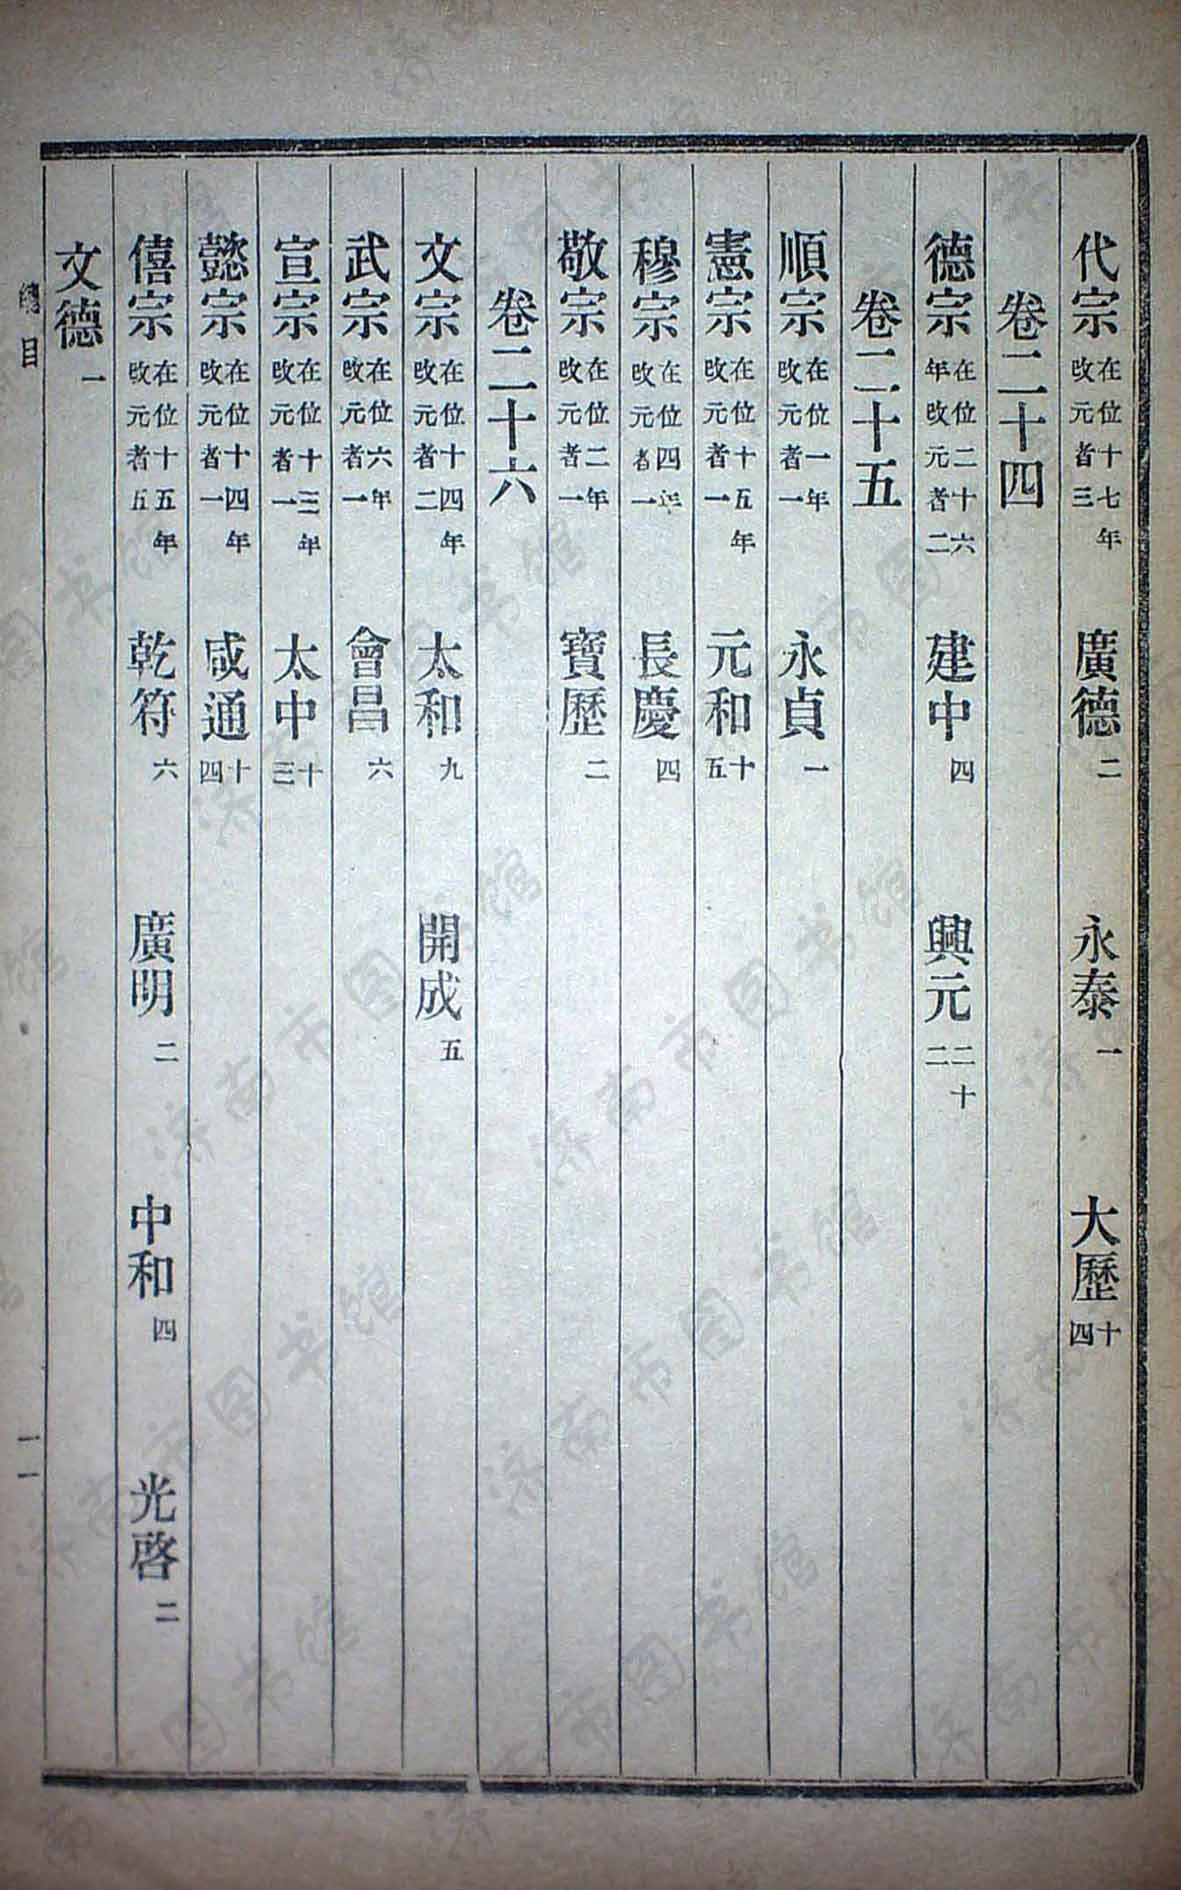 代宗 在位十七年改元者三 廣德 二 永泰 一 大歷 十四
卷二十四
德宗 在位二十六年改元者二 建中 四 興元 二十二
卷二十五
順宗 在位一年改元者一 永貞 一
憲宗 在位十五年改元者一 元和 十五
穆宗 在位四年改元者一 長慶 四
敬宗 在位二年改元者一 寶歷 二
卷二十六
文宗 在位十四年改元者二 太和 九 開成 五
武宗 在位六年改元者一 會昌 六
宣宗 在位十三年改元者一 太中 十三
懿宗 在位十四年改元者一 咸通 十四
僖宗 在位十五年改元者五 乾符 六 廣明 二 中和 四 光啓 二
文德 一
總目
一一
济南市图书馆